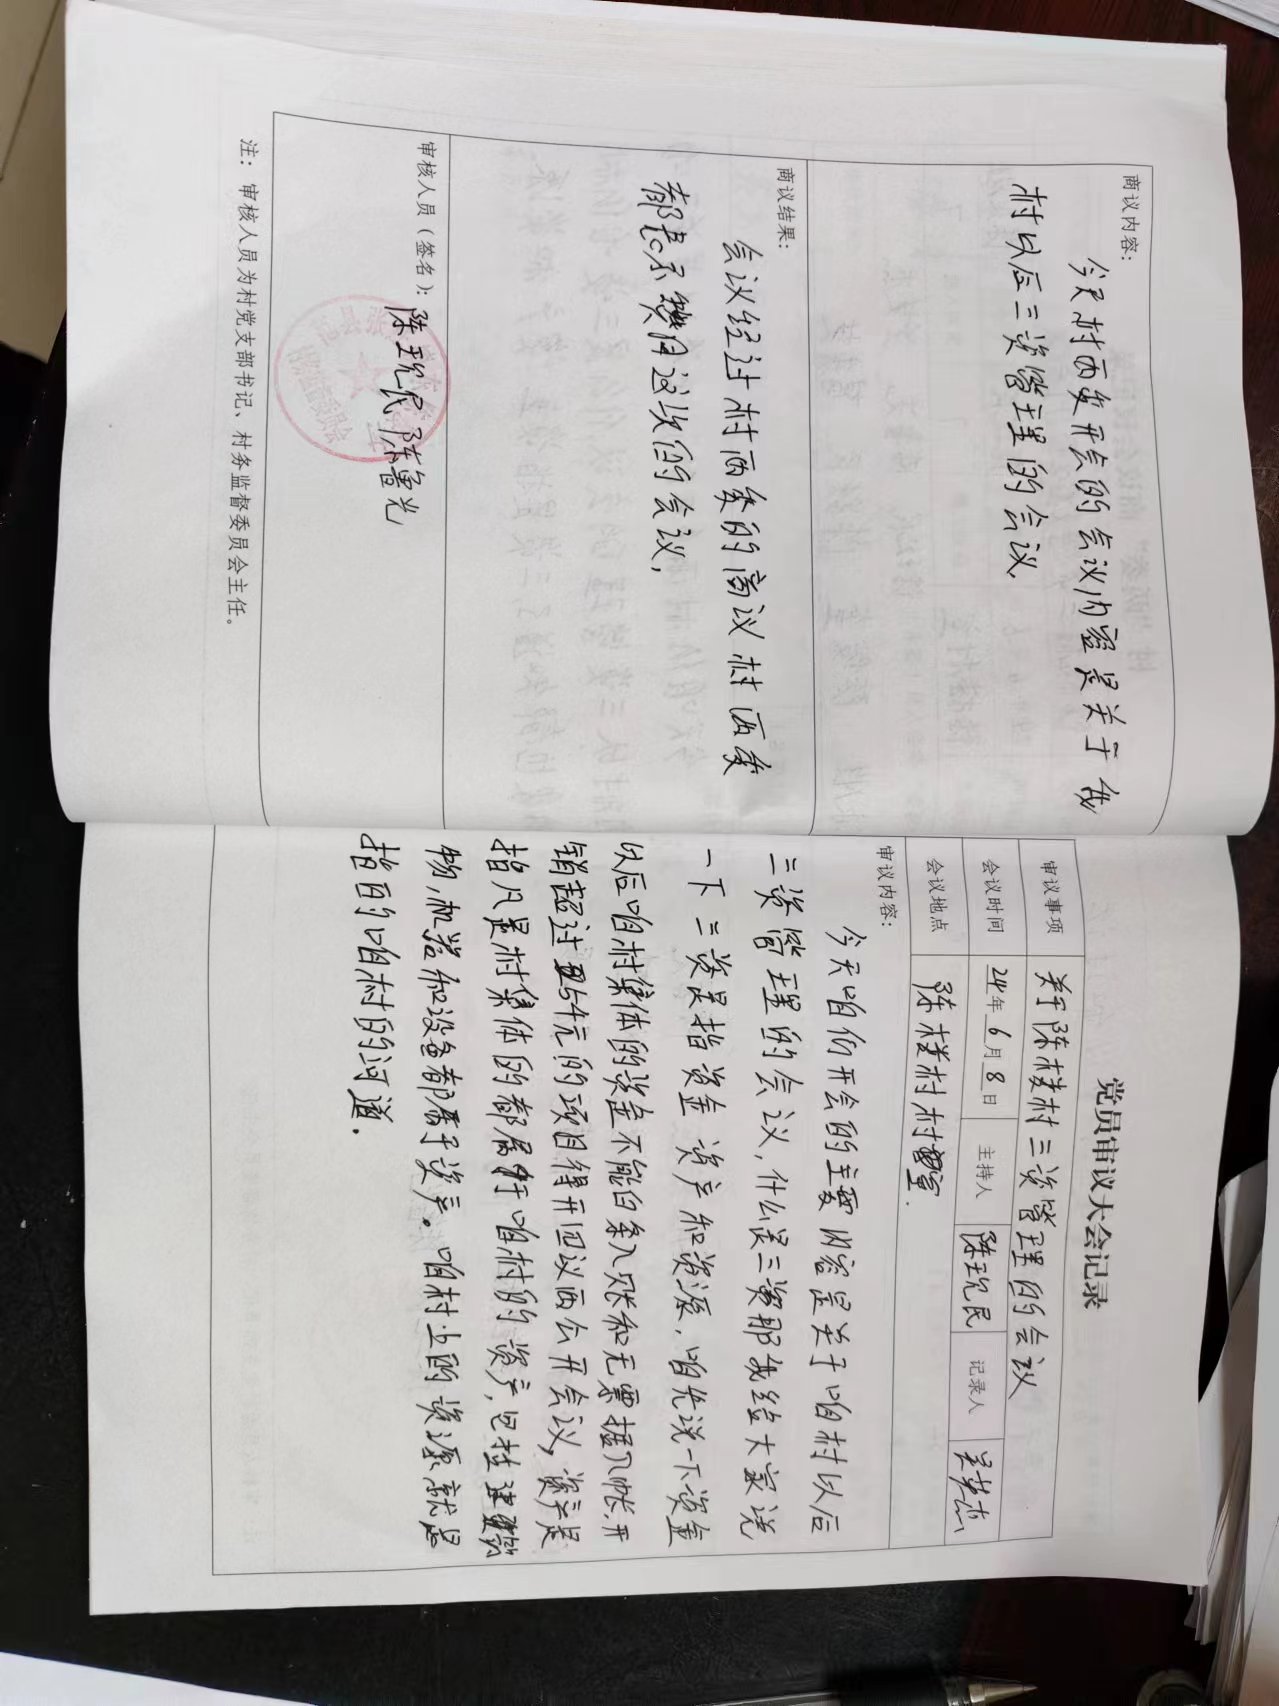 商议内容：
今天村两委开会的会议内容是关于我
村以后三资管理的会议.
商议结果：
会议经过村两委的商议村两委
都表示赞同这次的会议,
审核人员（签名）：陈现民 陈鲁光
注：审核人员为村党支部书记、村务监督委员会主任。
党员审议大会记录
审议事项 关于陈楼村三资管理的会议
会议时间 24年6月8日 主持人 陈现民 记录人
会议地点 陈楼村村室.
审议内容：
今天咱们开会的主要内容是关于咱村以后
三资管理的会议,什么是三资那我给大家说
一下 三资是指资金 资产和资源,咱先说一下资金
以后咱村集体的资金不能白条入账和无票据入帐.开
销超过5千元的项目得开四议两公开会议,资产是
指凡是村集体的都属于咱村的资产,包括建筑
物,机器和设备都属于资产。咱村上的资源就是
指目的咱村的河道.